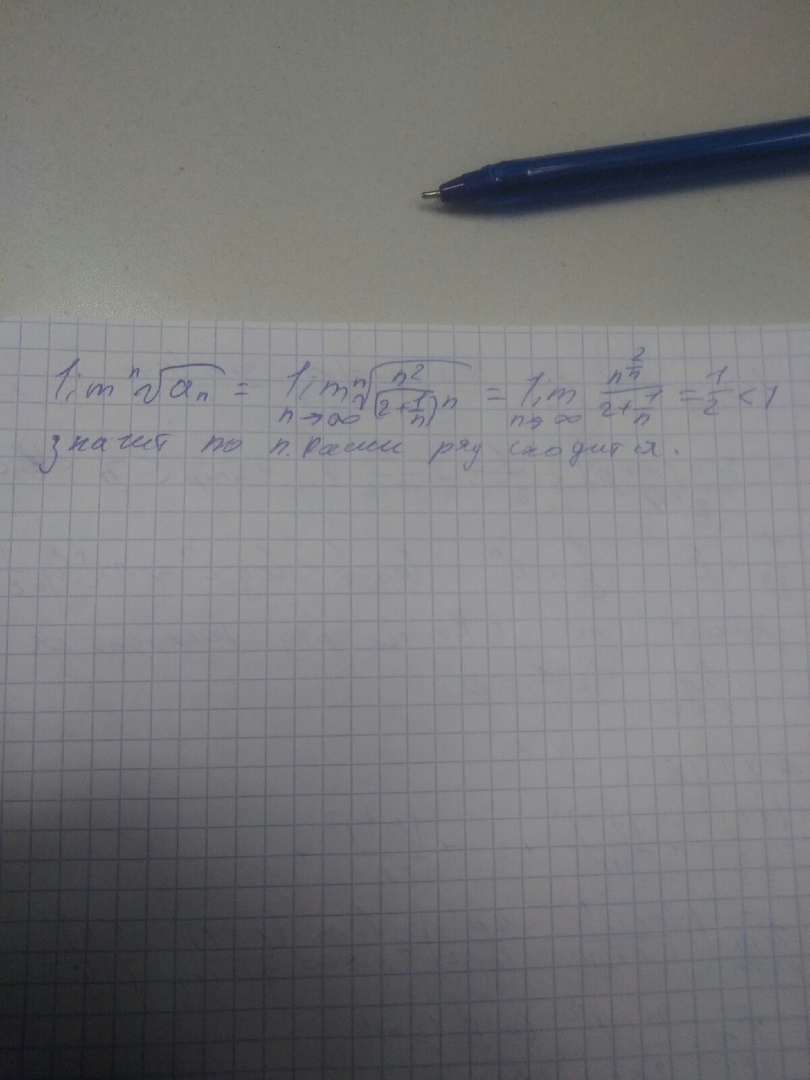 lim ⁿ√aₙ = lim n→∞ ⁿ√(n²/(2+1/n)ⁿ) = lim n→∞ n^(2/n)/(2+1/n) = 1/2 < 1
значит по п. Коши ряд сходится.